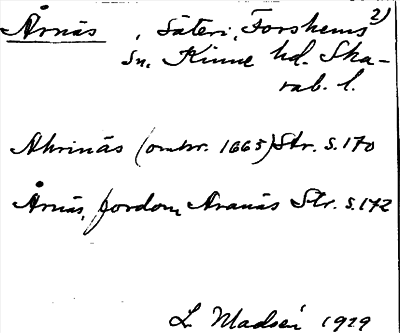 Årnäs , Säteri, Forshems 2)
sn. Kinne hd. Ska-
rab. l.
Ahrinäs (omkr. 1665) Str. s. 170
Årnäs, fordom Aranäs Str. s. 172
L. Madsén 1929